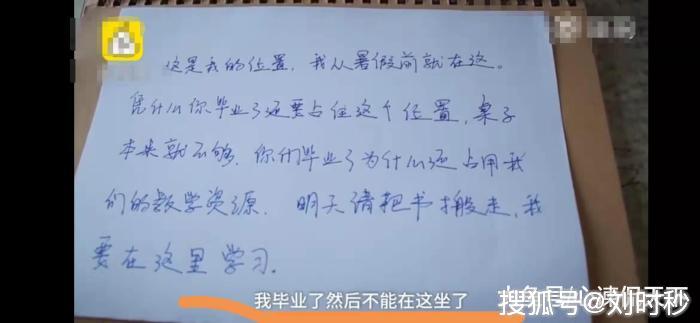 这是我的位置，我从暑假前就在这。
凭什么你毕业了还要占住这个位置，桌子
本来就不够，你们毕业了为什么还占用我
们的教学资源．明天请把书搬走，我
要在这里学习．
我毕业了然后不能在这坐了
搜狐号@刘时秒